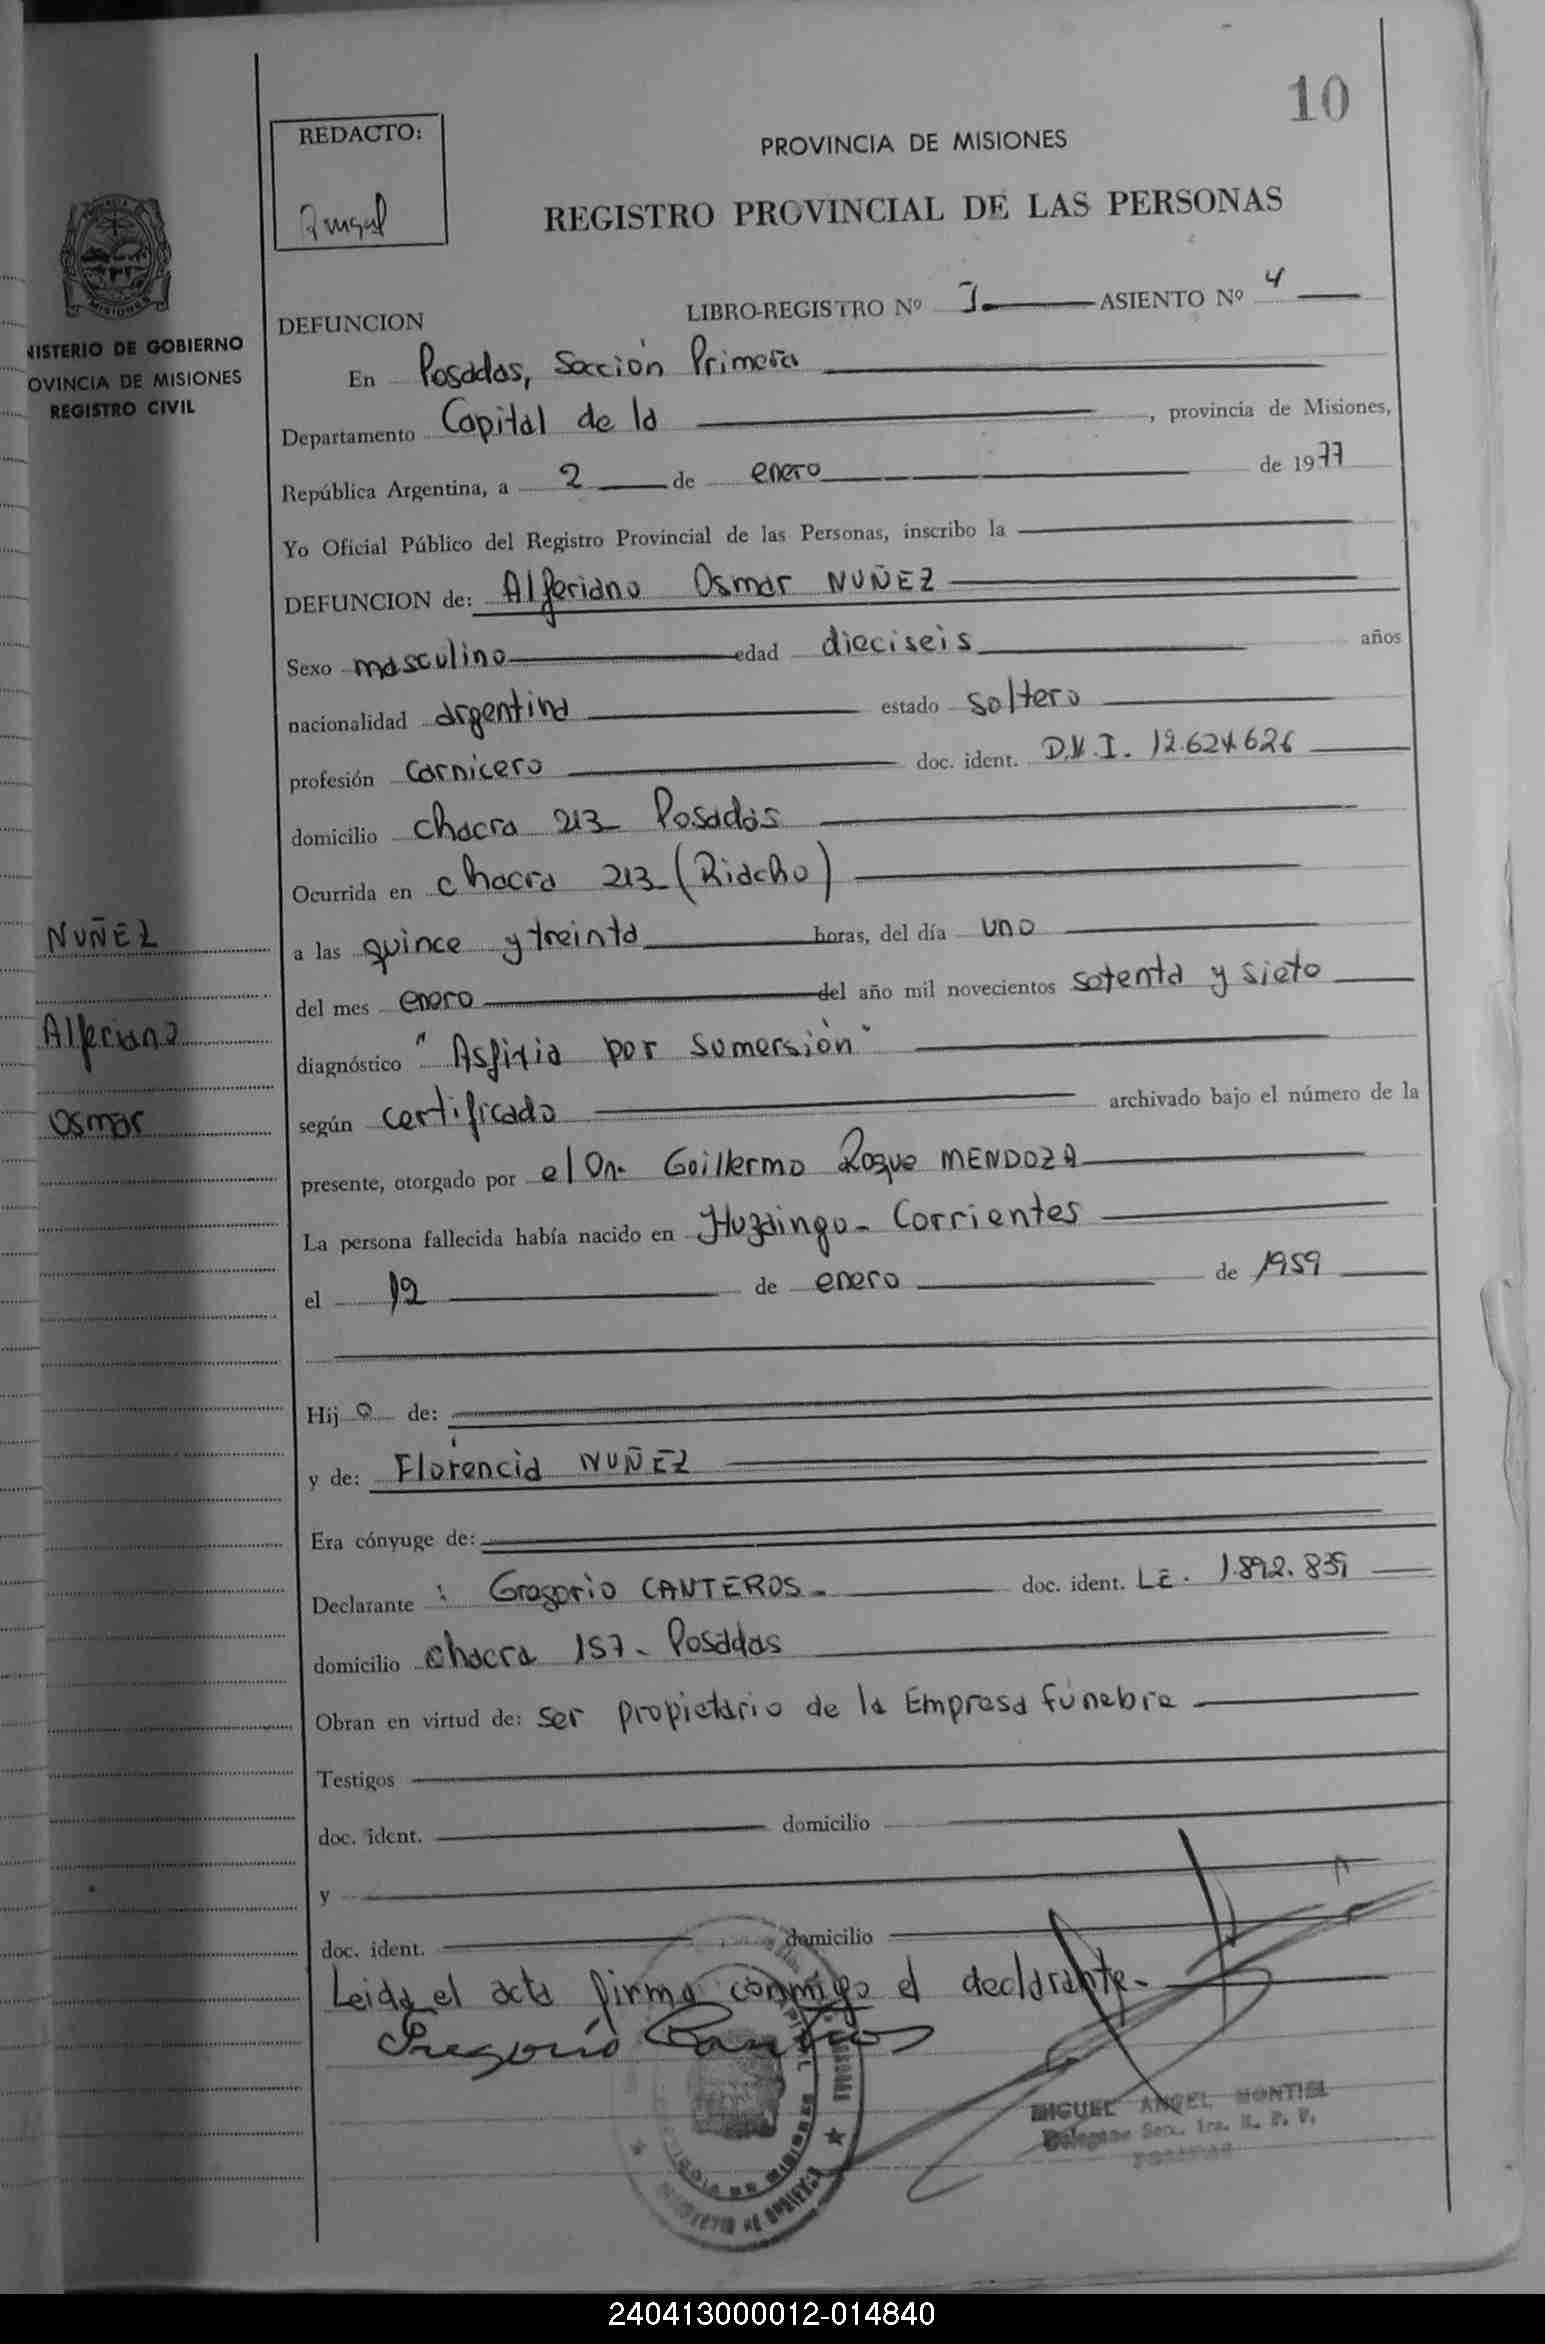 10
REDACTO:
PROVINCIA DE MISIONES
REGISTRO PROVINCIAL DE LAS PERSONAS
DEFUNCION LIBRO-REGISTRO Nº I ASIENTO Nº 4
NISTERIO DE GOBIERNO
OVINCIA DE MISIONES
REGISTRO CIVIL
En Posadas, Sección Primera
Departamento Capital de la , provincia de Misiones,
República Argentina, a 2 de enero de 1977
Yo Oficial Público del Registro Provincial de las Personas, inscribo la
DEFUNCION de: Alferiano Osmar NUÑEZ
Sexo masculino edad dieciseis años
nacionalidad argentina estado soltero
profesión carnicero doc. ident. D.N.I. 12.624.626
domicilio chacra 213 Posadas
Ocurrida en chacra 213 (Riacho)
NUÑEZ
Alferiano
Osmar
a las quince y treinta horas, del día uno
del mes enero del año mil novecientos setenta y siete
diagnóstico "Asfixia por Sumersión"
según certificado archivado bajo el número de la
presente, otorgado por el Guillermo Roque MENDOZA
La persona fallecida había nacido en Corrientes
el 12 de enero de 1959
Hij o de:
y de: Florencia NUÑEZ
Era cónyuge de:
Declarante : Gregorio CANTEROS doc. ident. LE. 1.892.839
domicilio chacra 157 - Posadas
Obran en virtud de: ser propietario de la Empresa fúnebre
Testigos
doc. ident. domicilio
y
doc. ident. domicilio
Leida el acta firma conmigo el declarante.
Gregorio Canteros
MIGUEL ANGEL MONTIEL
POSADAS
240413000012-014840